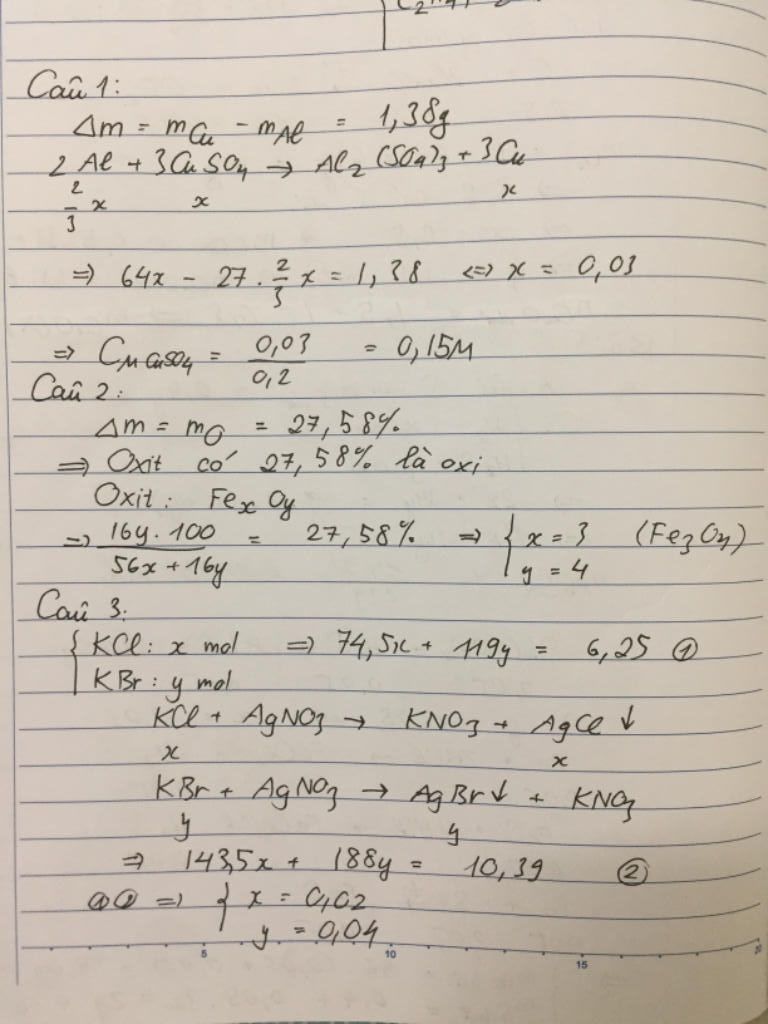 Câu 1:
Δm = mCu - mAl = 1,38g
2 Al + 3CuSO4 → Al2(SO4)3 + 3Cu
2/3 x x x
⇒ 64x - 27 . 2/3 x = 1,38 ⇔ x = 0,03
⇒ CM CuSO4 = 0,03/0,2 = 0,15M
Câu 2:
Δm = mO = 27,58%
⇒ Oxit có 27,58% là oxi
Oxit: FexOy
⇒ 16y.100/56x+16y = 27,58% ⇒ { x = 3 (Fe3O4)
y = 4
Câu 3:
{ KCl: x mol ⇒ 74,5x + 119y = 6,25 ①
KBr: y mol
KCl + AgNO3 → KNO3 + AgCl ↓
x x
KBr + AgNO3 → AgBr↓ + KNO3
y y
⇒ 143,5x + 188y = 10,39 ②
①② ⇒ { x = 0,02
y = 0,04
5 10 15